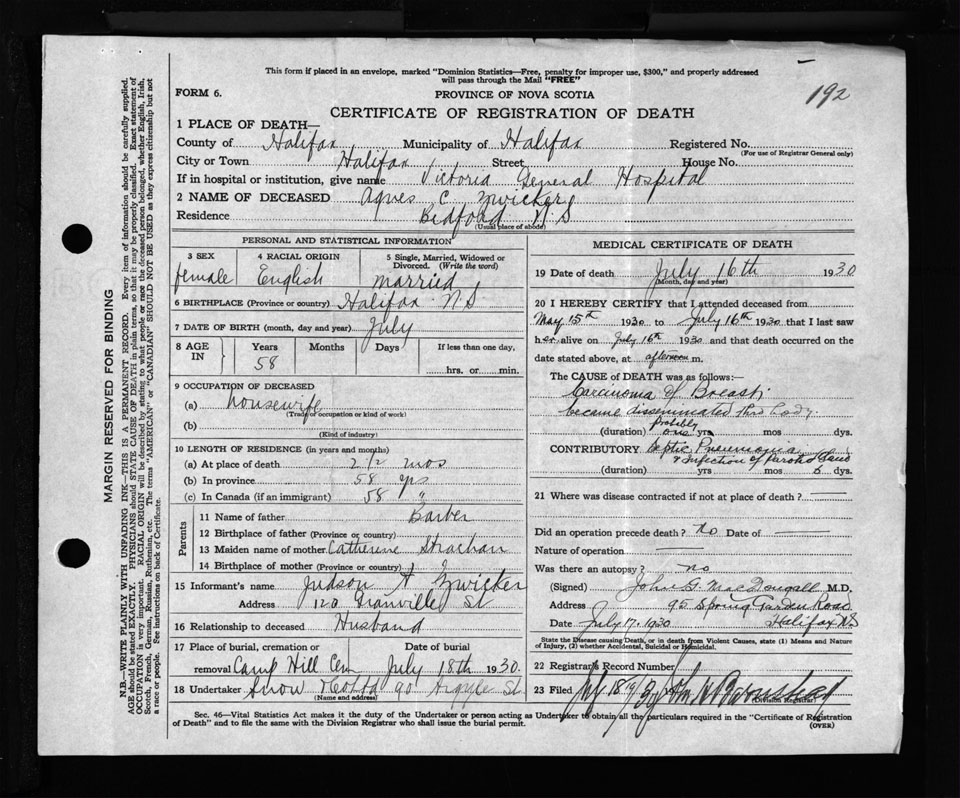 This form if placed in an envelope, marked "Dominion Statistics—Free, penalty for improper use, $300," and properly addressed
will pass through the Mail "FREE"
192
FORM 6.
PROVINCE OF NOVA SCOTIA
CERTIFICATE OF REGISTRATION OF DEATH
1 PLACE OF DEATH—
County of Halifax Municipality of Halifax Registered No.
(For use of Registrar General only)
City or Town Halifax Street House No.
If in hospital or institution, give name Victoria General Hospital
2 NAME OF DECEASED Agnes C Zwicker
Residence Bedford N.S
(Usual place of abode)
PERSONAL AND STATISTICAL INFORMATION
3 SEX 4 RACIAL ORIGIN 5 Single, Married, Widowed or
Divorced. (Write the word)
female English married
6 BIRTHPLACE (Province or country) Halifax N.S
7 DATE OF BIRTH (month, day and year) July
8 AGE IN Years Months Days If less than one day,
58 hrs. or min.
9 OCCUPATION OF DECEASED
(a) housewife
(Trade or occupation or kind of work)
(b)
(Kind of industry)
10 LENGTH OF RESIDENCE (in years and months)
(a) At place of death 2 1/2 mos
(b) In province 58 yrs
(c) In Canada (if an immigrant) 58 "
Parents
11 Name of father Barber
12 Birthplace of father (Province or country)
13 Maiden name of mother Catherine Strachan
14 Birthplace of mother (Province or country)
15 Informant's name Judson A Zwicker
Address 120 Granville St
16 Relationship to deceased Husband
17 Place of burial, cremation or Date of burial
removal Camp Hill Cem July 18th 1930.
18 Undertaker Snow 90 Argyle St
(Name and address)
MEDICAL CERTIFICATE OF DEATH
19 Date of death July 16th 1930
(Month, day and year)
20 I HEREBY CERTIFY that I attended deceased from
May 15th 1930 to July 16th 1930 that I last saw
her alive on July 16th 1930 and that death occurred on the
date stated above, at afternoon m.
The CAUSE OF DEATH was as follows:—
Carcinoma of Breast;
became disseminated thro body.
probably
(duration) one yrs mos dys.
CONTRIBUTORY Septic Pneumonia
& Infection of Parotid Gland
(duration) yrs mos dys.
21 Where was disease contracted if not at place of death?
Did an operation precede death? no Date of
Nature of operation
Was there an autopsy? no
(Signed) John G. MacDougall M.D.
Address 95 Spring Garden Road
Date July 17. 1930 Halifax NS
State the Disease causing Death, or in death from Violent Causes, state (1) Means and Nature
of Injury, (2) whether Accidental, Suicidal or Homicidal.
22 Registrar's Record Number
23 Filed
(Division Registrar)
Sec. 46—Vital Statistics Act makes it the duty of the Undertaker or person acting as Undertaker to obtain all the particulars required in the "Certificate of Registration
of Death" and to file the same with the Division Registrar who shall issue the burial permit.
(OVER)
MARGIN RESERVED FOR BINDING
N.B.—WRITE PLAINLY WITH UNFADING INK—THIS IS A PERMANENT RECORD. Every item of information should be carefully supplied.
AGE should be stated EXACTLY. PHYSICIANS should STATE CAUSE OF DEATH in plain terms, so that it may be properly classified. Exact statement of
OCCUPATION is very important. RACIAL ORIGIN will be described by stating to what people or race the deceased person belonged, whether English, Irish,
Scotch, French, German, Russian, Ruthenian, etc. The terms "AMERICAN" or "CANADIAN" SHOULD NOT BE USED as they express citizenship but not
a race or people. See instructions on back of Certificate.